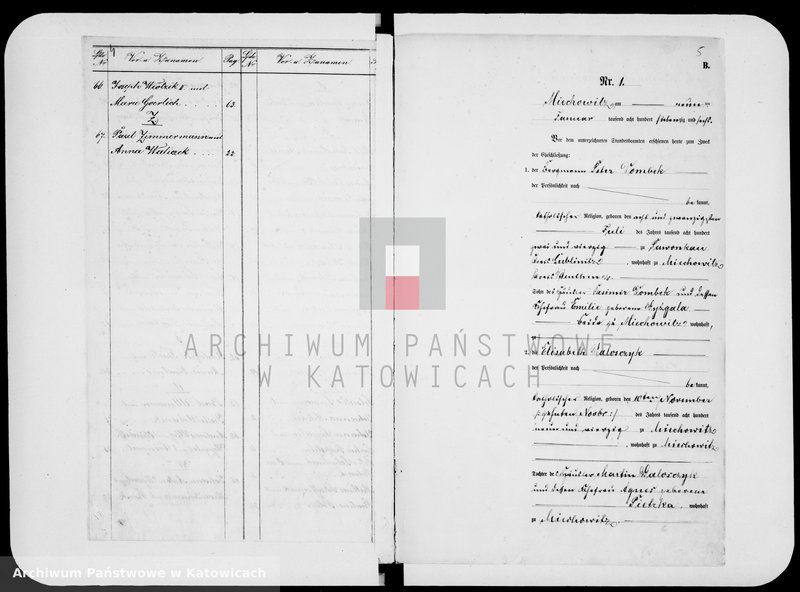 Lfde Nr Vor. u. Zunamen Pag. Lfde Nr Vor. u. Zunamen
66 Joseph Wrotzik I und
Marie Goerlich . . . . 63.
Z
67. Paul Zimmermann und
Anna Waliczek . . . . 22.
5
B.
Nr. 1.
Miechowitz am neunten
Januar tausend acht hundert siebenzig und sechs.
Vor dem unterzeichneten Standesbeamten erschienen heute zum Zweck
der Eheschließung:
1. der Bergmann Peter Dombek
der Persönlichkeit nach
be kannt,
katholischer Religion, geboren den acht und zwanzigsten
Juli des Jahres tausend acht hundert
zwei und vierzig zu
Kreis Lublinitz, wohnhaft zu Miechowitz
Kreis Beuthen
Sohn des Häusler Casimir Dombek und dessen
Ehefrau Emilie geborene
Beide zu Miechowitz wohnhaft,
2. die Elisabeth
der Persönlichkeit nach
be kannt,
katholischer Religion, geboren den 10ten November
des Jahres tausend acht hundert
neun und vierzig zu Miechowitz
, wohnhaft zu Miechowitz
Tochter des Häusler Martin
und dessen Ehefrau Agnes geborene
Pietzka, wohnhaft
zu Miechowitz
ARCHIWUM PAŃSTWOWE
W KATOWICACH
Archiwum Państwowe w Katowicach